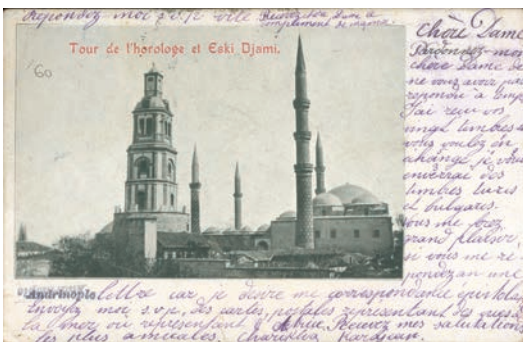 Repondez moi s.v.p. ville
compliment de mama.
Tour de l'horologe et Eski Djami.
60
Chère Dame
Pardonnez-moi
chère Dame de
ne vous avoir pas
repondu à
J'ai reçu vos
vingt timbres
vous voulez en
échange je vous
enverrai des
timbres turcs
et bulgares.
Vous me
grand plaisir
si vous me re
pondez an une
Andrinople
lettre car je désire me correspondance
Envoyez moi s.v.p. des cartes postales représentant des vues
la mer ou représentant Recevez mes salutations
les plus amicales.